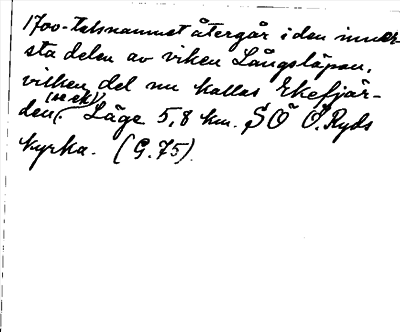 1700-talsnamnet återgår i den inner-
sta delen av viken Långsläpan,
vilken del nu kallas Ekefjär-
den (se ek). Läge 5,8 km. SÖ Ö. Ryds
kyrka. (G.75).